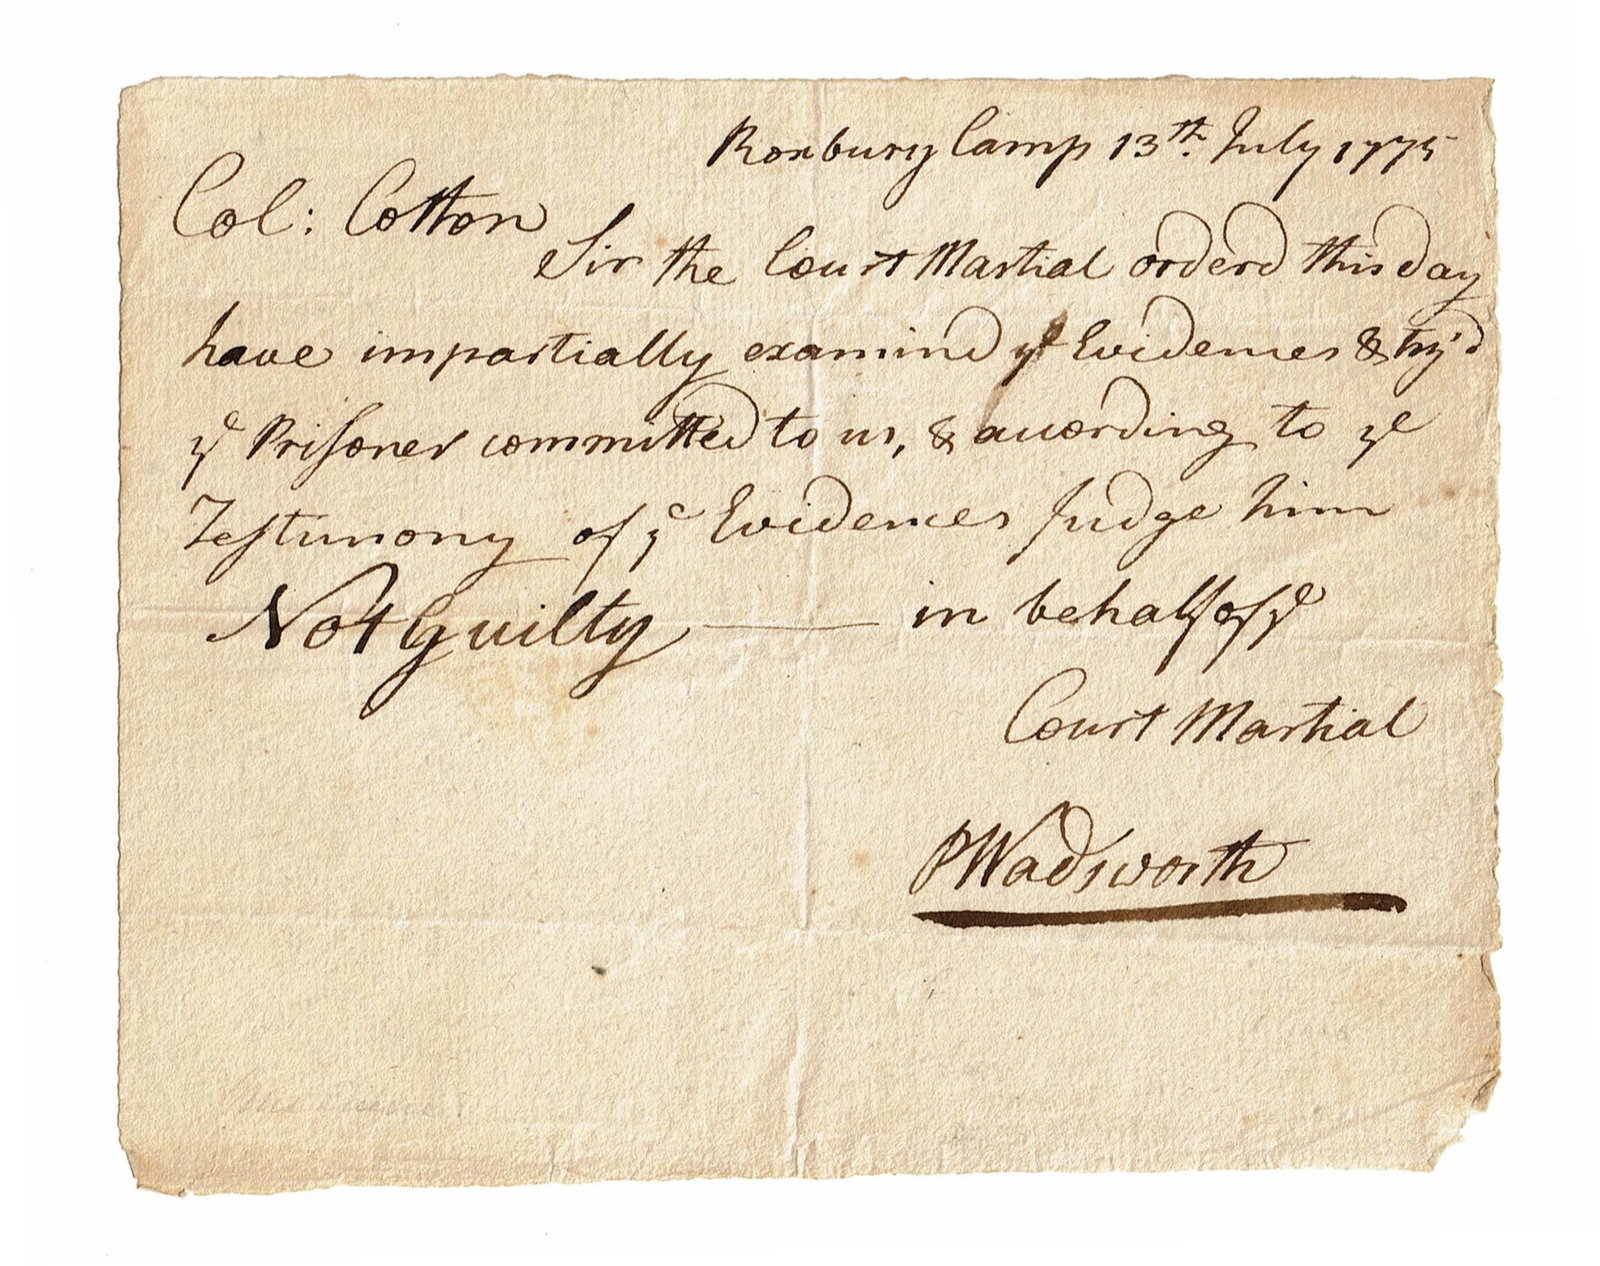 Roxbury Camp 13th. July 1775
Col: Cotton
Sir the Court Martial orderd this day
have impartially examind ye Evidences & try'd
ye Prisoner committed to us, & according to ye
Testimony of ye Evidences Judge him
Not Guilty —— in behalf of ye
Court Martial
PWadsworth